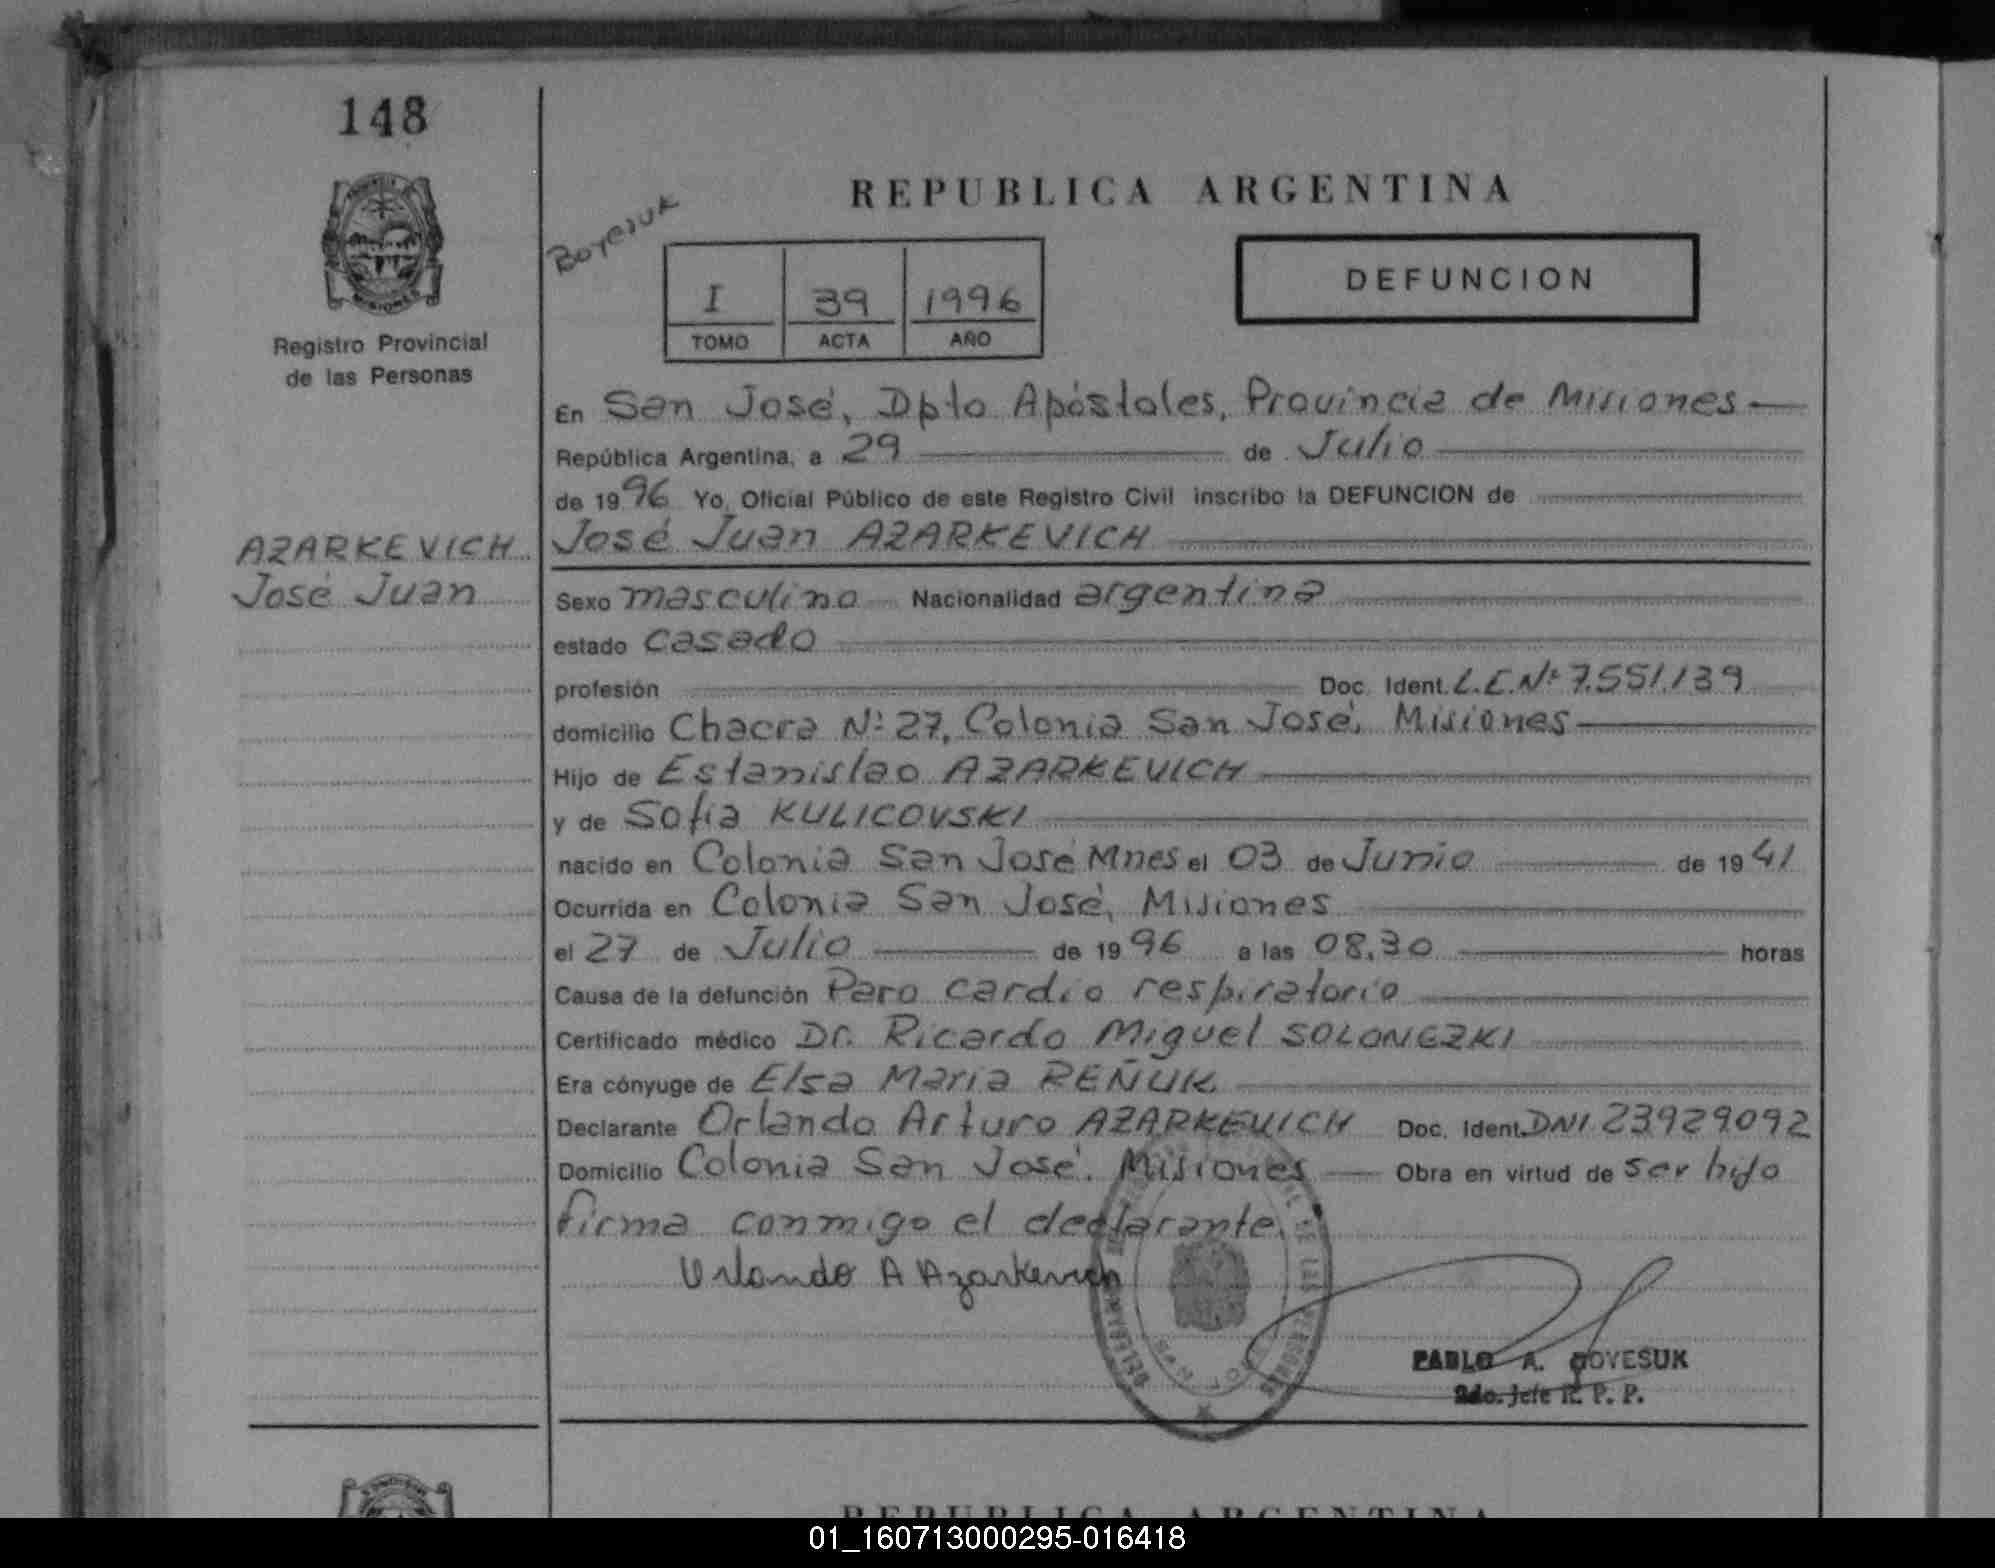 148
REPUBLICA ARGENTINA
Boyesuk
DEFUNCION
I 39 1996
TOMO ACTA AÑO
Registro Provincial
de las Personas
En San José, Dpto Apóstoles, Provincia de Misiones
República Argentina, a 29 de Julio
de 1996 Yo, Oficial Público de este Registro Civil inscribo la DEFUNCION de
AZARKEVICH
José Juan
José Juan AZARKEVICH
Sexo masculino Nacionalidad argentina
estado casado
profesión Doc. Ident. L.E. Nº 7.551.139
domicilio Chacra Nº 27, Colonia San José, Misiones
Hijo de Estanislao AZARKEVICH
y de Sofia KULICOVSKI
nacido en Colonia San José Mnes el 03 de Junio de 1941
Ocurrida en Colonia San José, Misiones
el 27 de Julio de 1996 a las 08,30 horas
Causa de la defunción Paro cardio respiratorio
Certificado médico Dr. Ricardo Miguel SOLONEZKI
Era cónyuge de Elsa Maria REÑUK
Declarante Orlando Arturo AZARKEVICH Doc. Ident. DNI 23929092
Domicilio Colonia San José, Misiones Obra en virtud de ser hijo
firma conmigo el declarante.
Orlando A Azarkevich
PABLO A. BOYESUK
2do. Jefe R. P. P.
REPUBLICA ARGENTINA
01_160713000295-016418